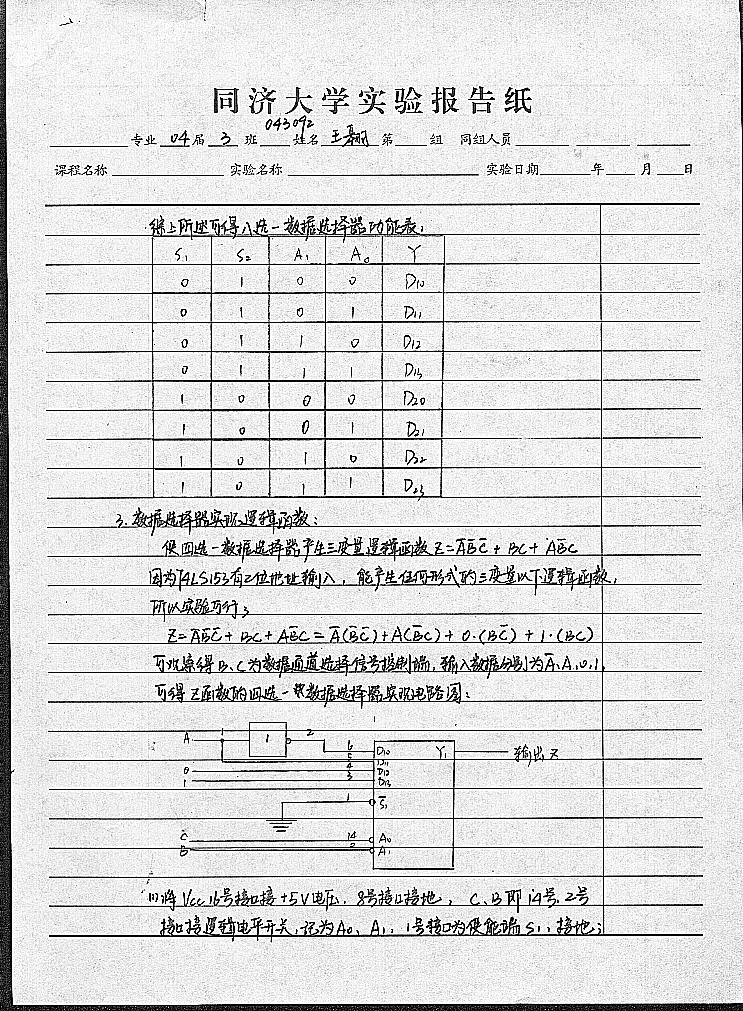 同济大学实验报告纸
043092
专业 04 届 3 班 姓名 王 第 组 同组人员
课程名称 实验名称 实验日期 年 月 日
综上所述可得八选一数据选择器功能表:
S₁ S₂ A₁ A₀ Y
0 1 0 0 D₁₀
0 1 0 1 D₁₁
0 1 1 0 D₁₂
0 1 1 1 D₁₃
1 0 0 0 D₂₀
1 0 0 1 D₂₁
1 0 1 0 D₂₂
1 0 1 1 D₂₃
3. 数据选择器实现逻辑函数:
使四选一数据选择器产生三变量逻辑函数 Z=A̅B̅C̅ + BC + AB̅C
因为74LS153有2位地址输入, 能产生任何形式的三变量以下逻辑函数,
所以实验可行;
Z=A̅B̅C̅ + BC + AB̅C = A̅(B̅C̅)+A(B̅C)+0·(BC̅)+1·(BC)
可观察得B、C为数据通道选择信号控制端, 输入数据分别为A̅、A、0、1,
可得Z函数的四选一数据选择器实现电路图:
A 1 1 2 6 D₁₀ Y₁ 输出Z
5 D₁₁
0 4 D₁₂
1 3 D₁₃
1 S̅₁
C 14 A₀
B 2 A₁
(1)将Vcc 16号接口接+5V电压, 8号接口接地, C、B即14号、2号
接口接逻辑电平开关, 记为A₀、A₁, 1号接口为使能端S₁, 接地;